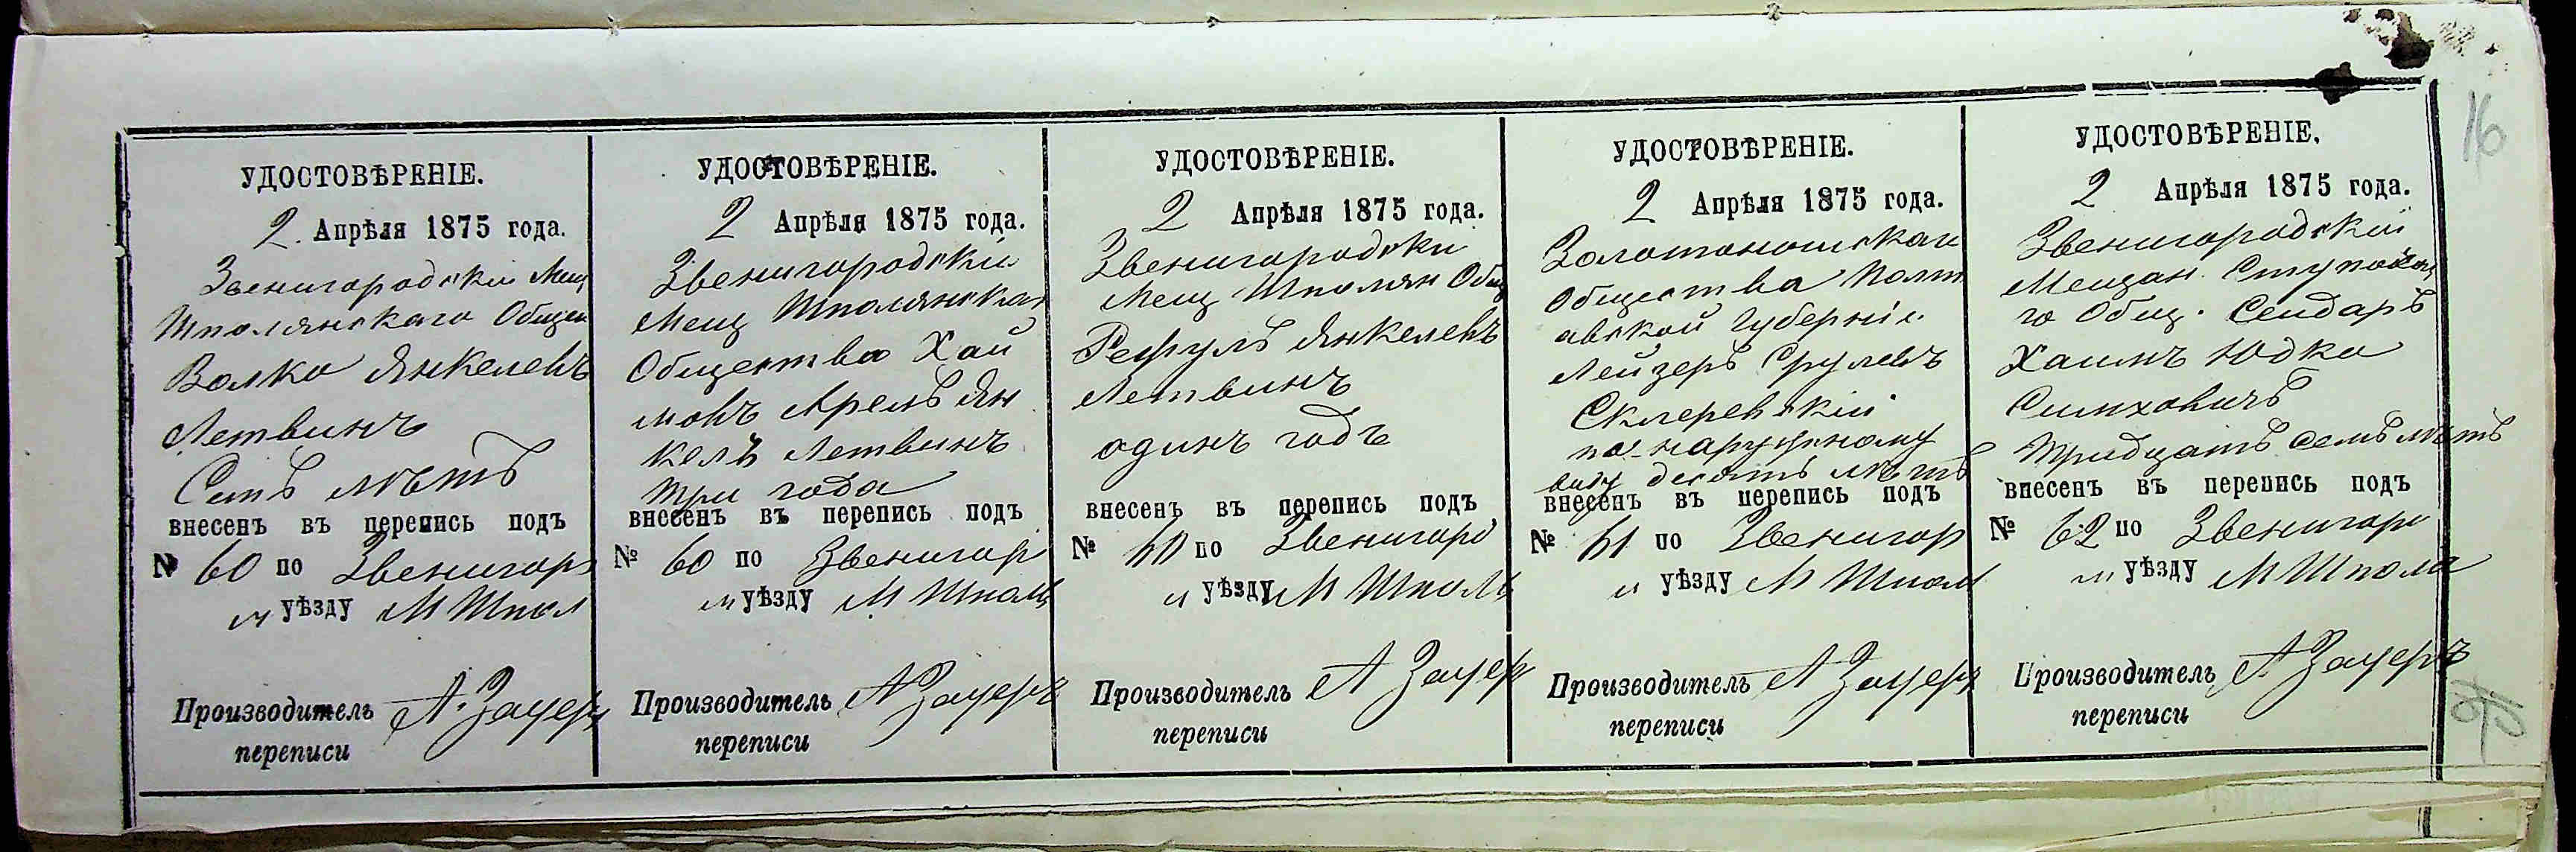 УДОСТОВѢРЕНІЕ.
2. Апрѣля 1875 года.
Звенигородскій Мещ
Шполянскаго Общес
Волко Янкелевъ
Летвинъ
Семь лѣтъ
внесенъ въ перепись подъ
№ 60 по Звенигоро
м уѣзду М Шпол
Производитель А. Зауеръ
переписи
УДОСТОВѢРЕНІЕ.
2 Апрѣля 1875 года.
Звенигородскій
Мещ Шполянскаго
Общества Хай
мовъ Арель Ян
кель Летвинъ
три года
внесенъ въ перепись подъ
№ 60 по Звенигор
м уѣзду М Шпол
Производитель А Зауеръ
переписи
УДОСТОВѢРЕНІЕ.
2 Апрѣля 1875 года.
Звенигородски
Мещ Шполян Общ
Рефуль Янкелевъ
Летвинъ
одинъ годъ
внесенъ въ перепись подъ
№ 60 по Звенигоро
м уѣзду М Шполь
Производитель А Зауер
переписи
УДОСТОВѢРЕНІЕ.
2 Апрѣля 1875 года.
Золотоношскаго
Общества Полт
авской Губерніи
Лейзеръ Срулевъ
Склеревскій
по наружному
виду десять лѣтъ
внесенъ въ перепись подъ
№ 61 по Звенигор
м уѣзду М Шпол
Производитель А Зауеръ
переписи
УДОСТОВѢРЕНІЕ.
2 Апрѣля 1875 года.
Звенигородскій
Мещан.
го Общ. Сендаръ
Хаимъ Юдко
Симховичъ
Тридцать семь лѣтъ
внесенъ въ перепись подъ
№ 62 по Звенигоро
м уѣзду М Шпола
Производитель А. Зауеръ
переписи
16